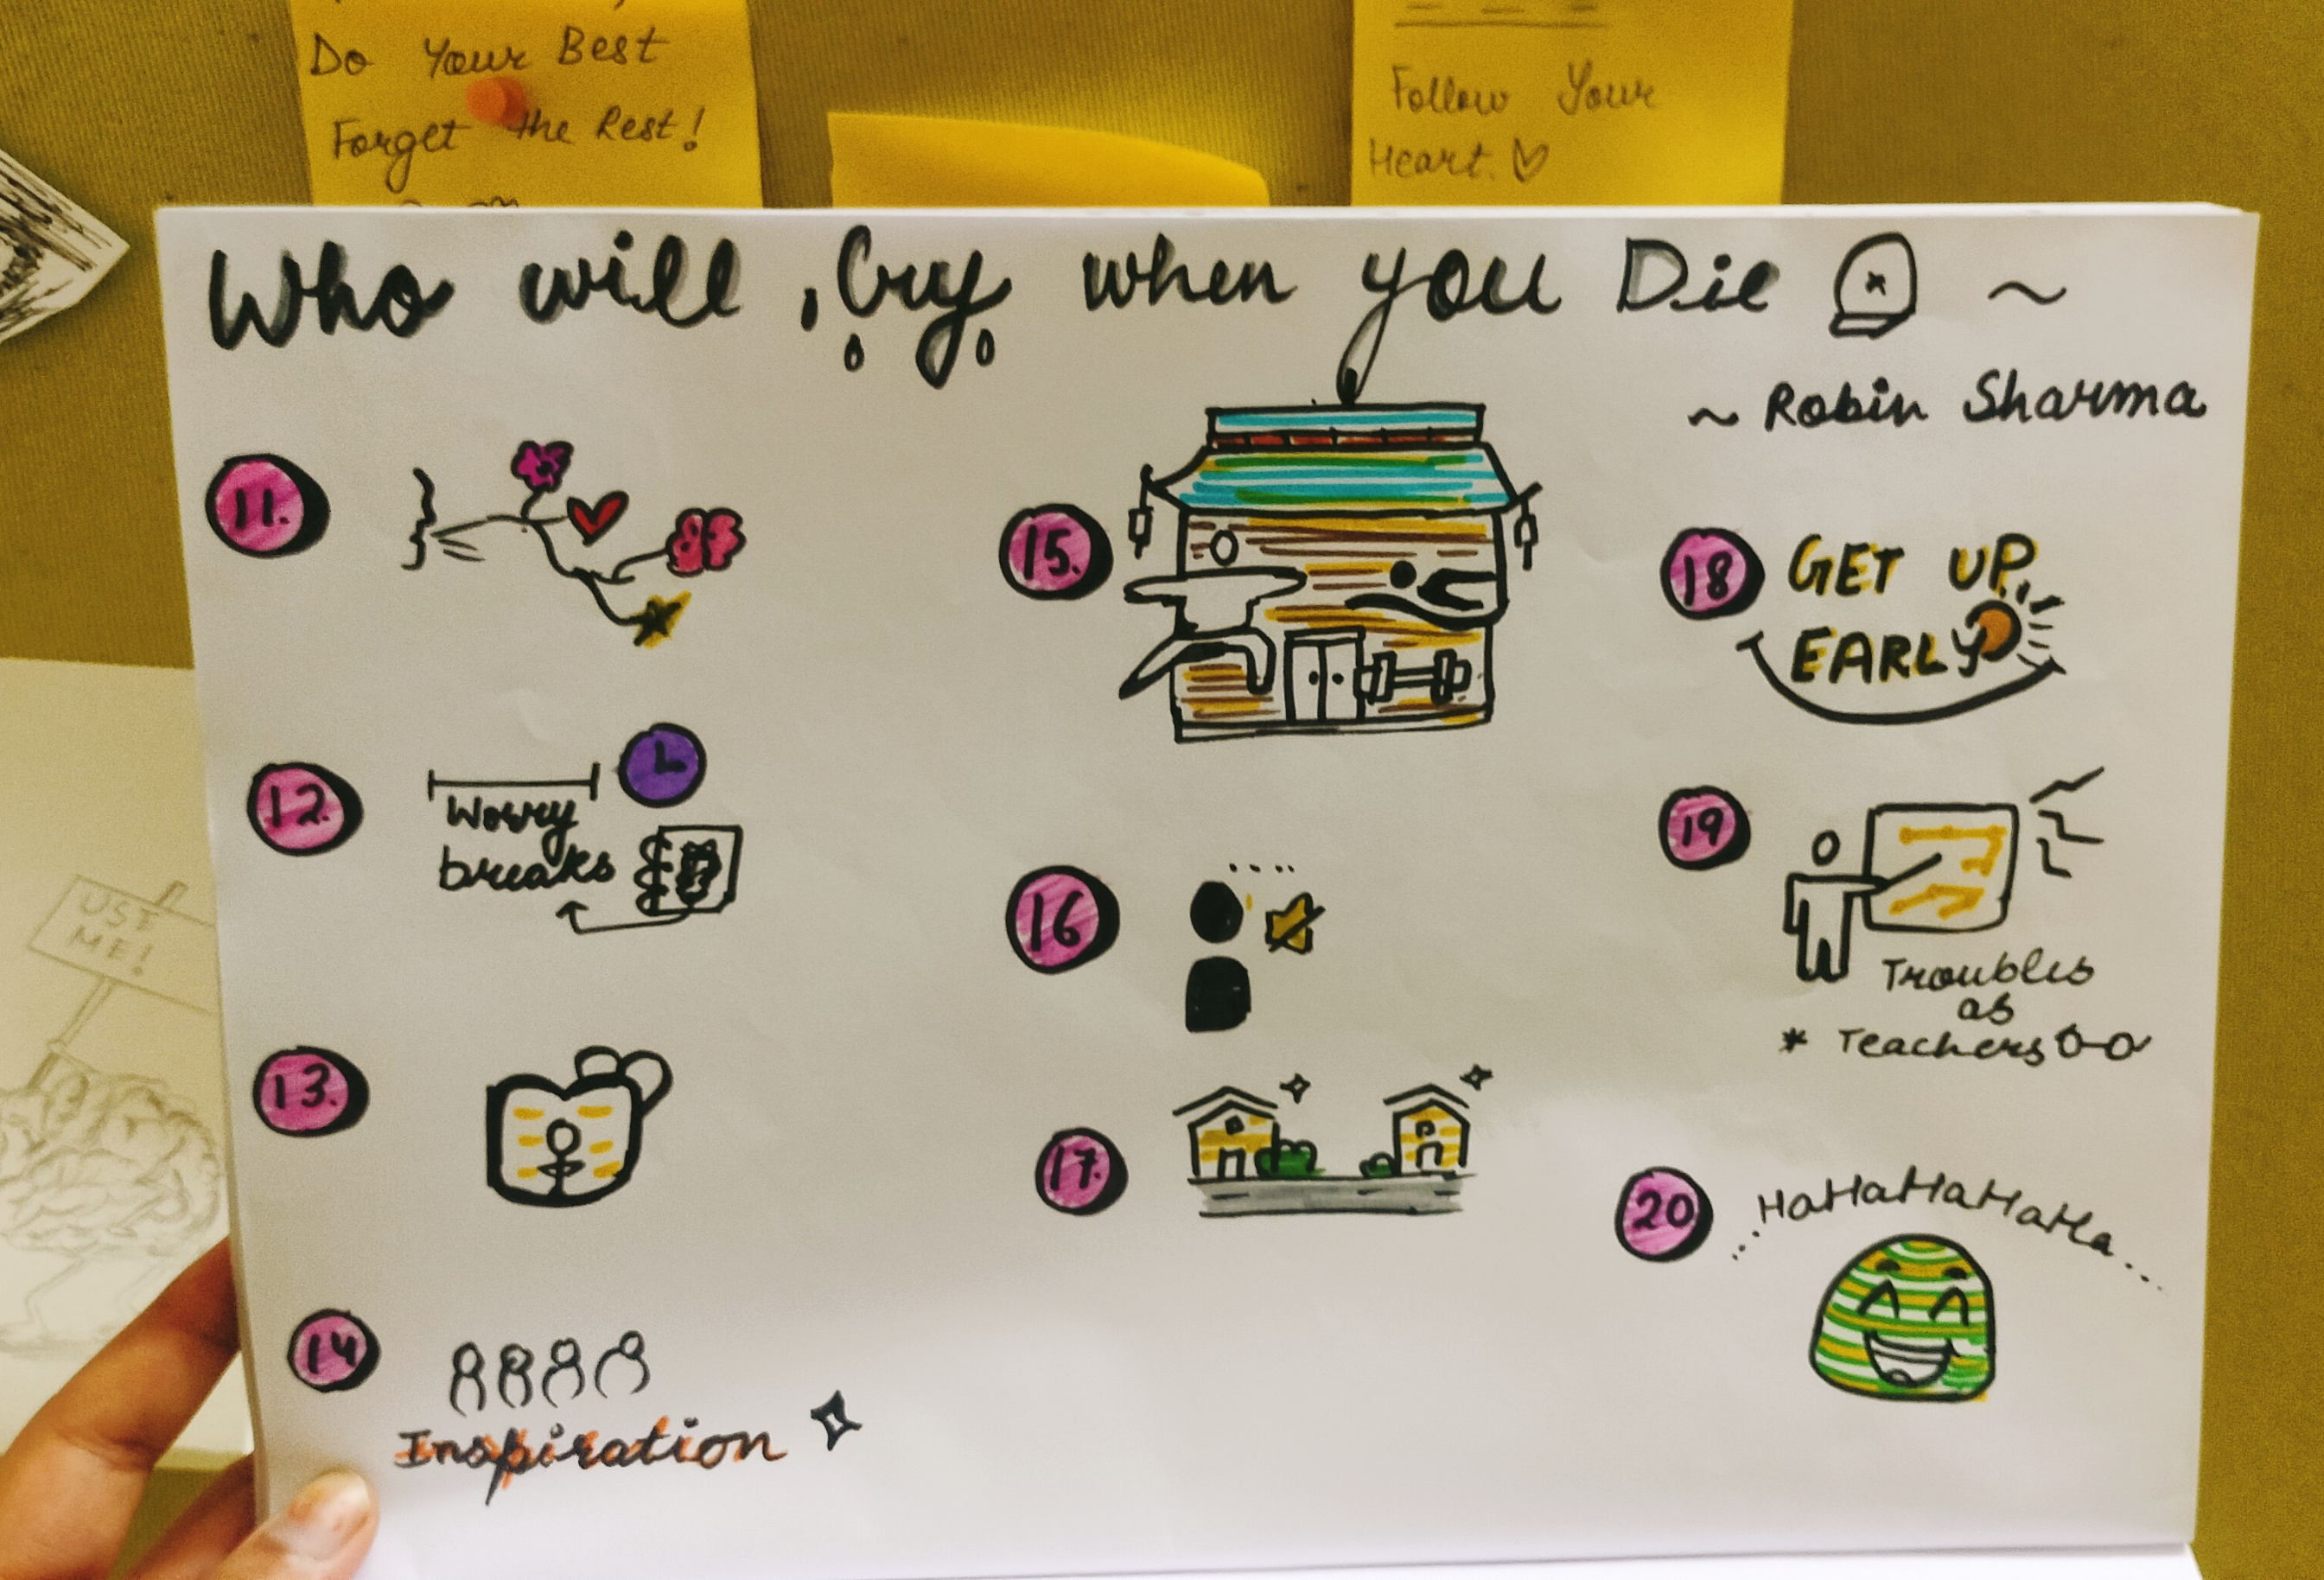 Do Your Best
Forget the Rest!
Follow Your
Heart.
Who will Cry when you Die ~
~ Robin Sharma
11.
12.
Worry
breaks
13.
14
Inspiration
15.
16
17.
18
GET UP
EARLY
19
Troubles
as
* Teachers
20
HaHaHaHaHaHa
USE
ME!